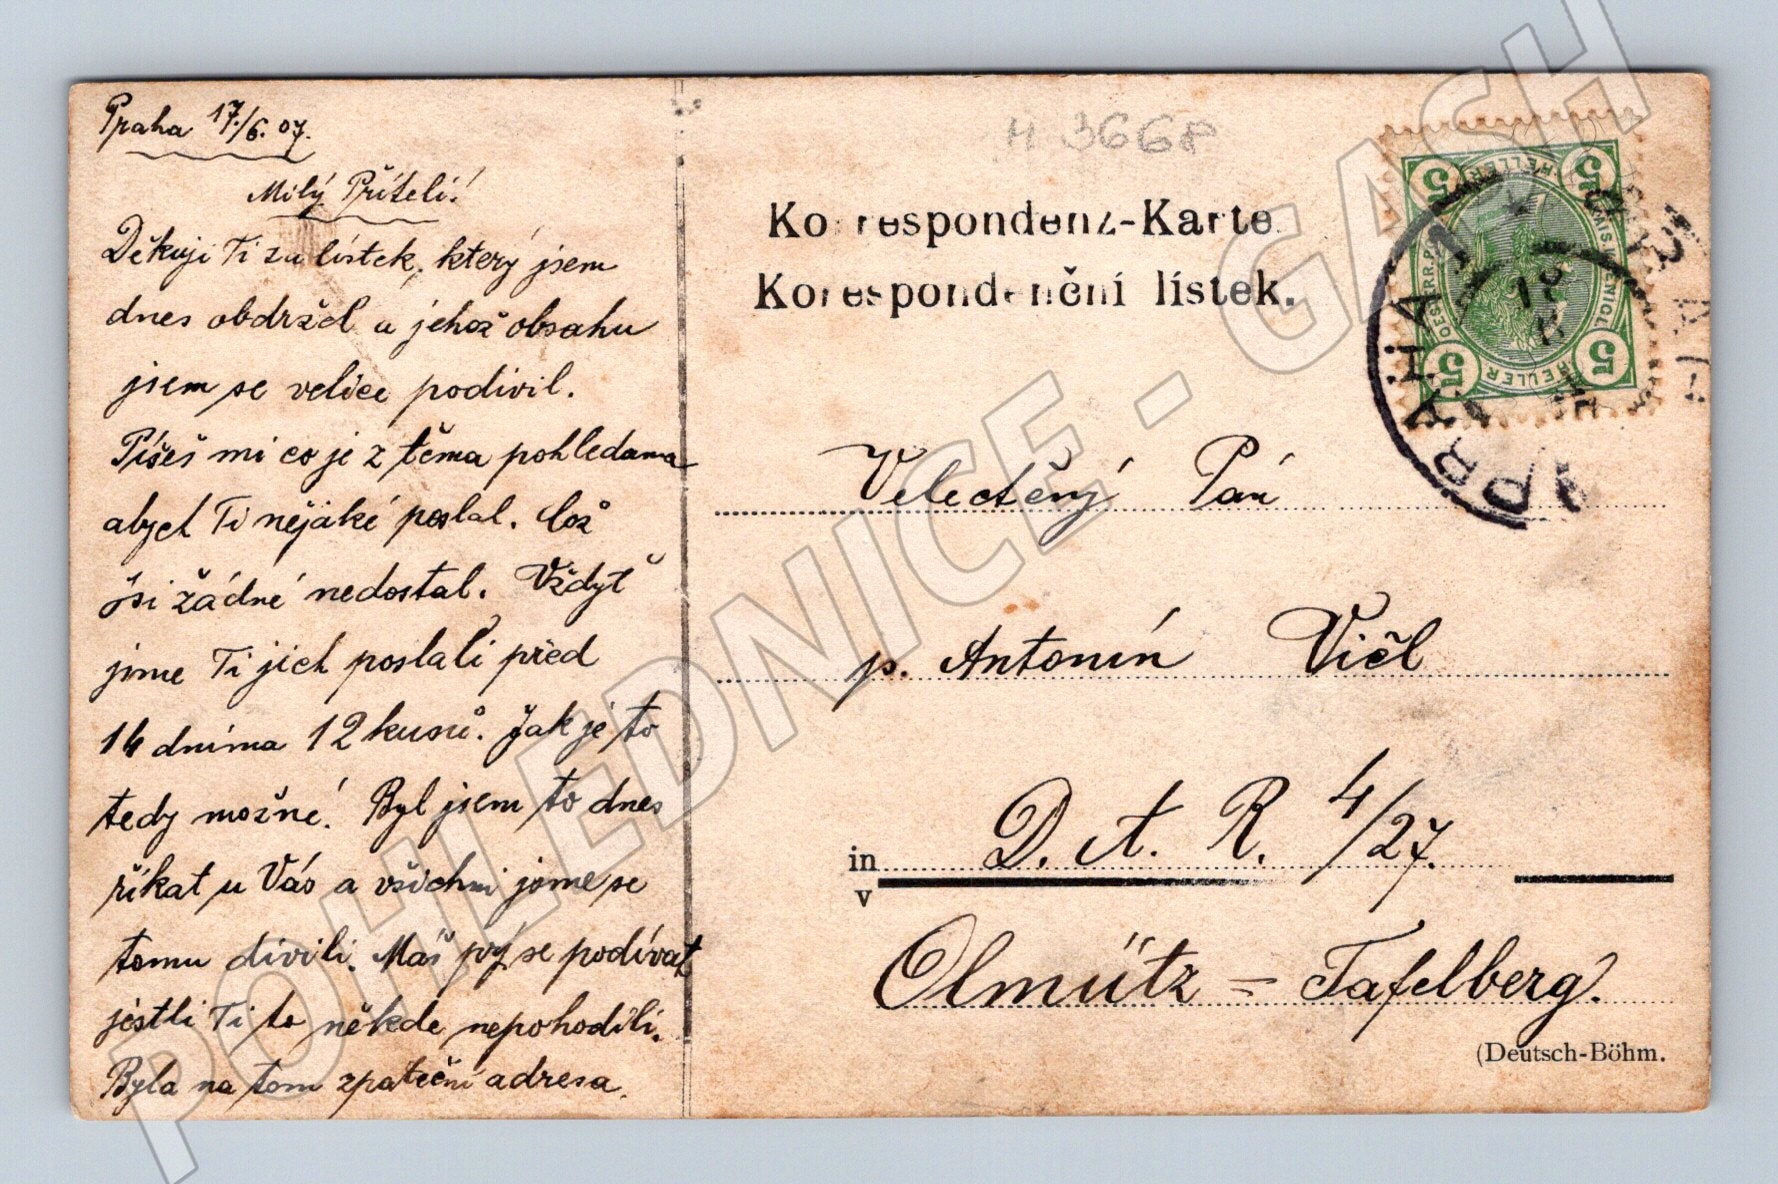 Praha 17./6. 07.
Milý Příteli!
Děkuji Ti za lístek, který jsem
dnes obdržel a jehož obsahu
jsem se velice podivil.
Píšeš mi co je z těma pohledama
abych Ti nějaké poslal. Což
jsi žádné nedostal. Vždyť
jsme Ti jich poslali před
14 dníma 12 kusů. Jak je to
tedy možné! Byl jsem to dnes
říkat u Vás a všichni jsme se
tomu divili. Máš prý se podívat
jestli Ti to někde nepohodili.
Byla na tom zpateční adresa.
H 3668
Korrespondenz-Karte.
Korespondenční lístek.
5 5 5 5
HELLER HELLER
PRAHA 1
Veléctěný Pán
p. Antonín Vičl
in D. A. R. 4/27.
v
Olmütz = Tafelberg.
(Deutsch-Böhm.
POHLEDNICE - GASH